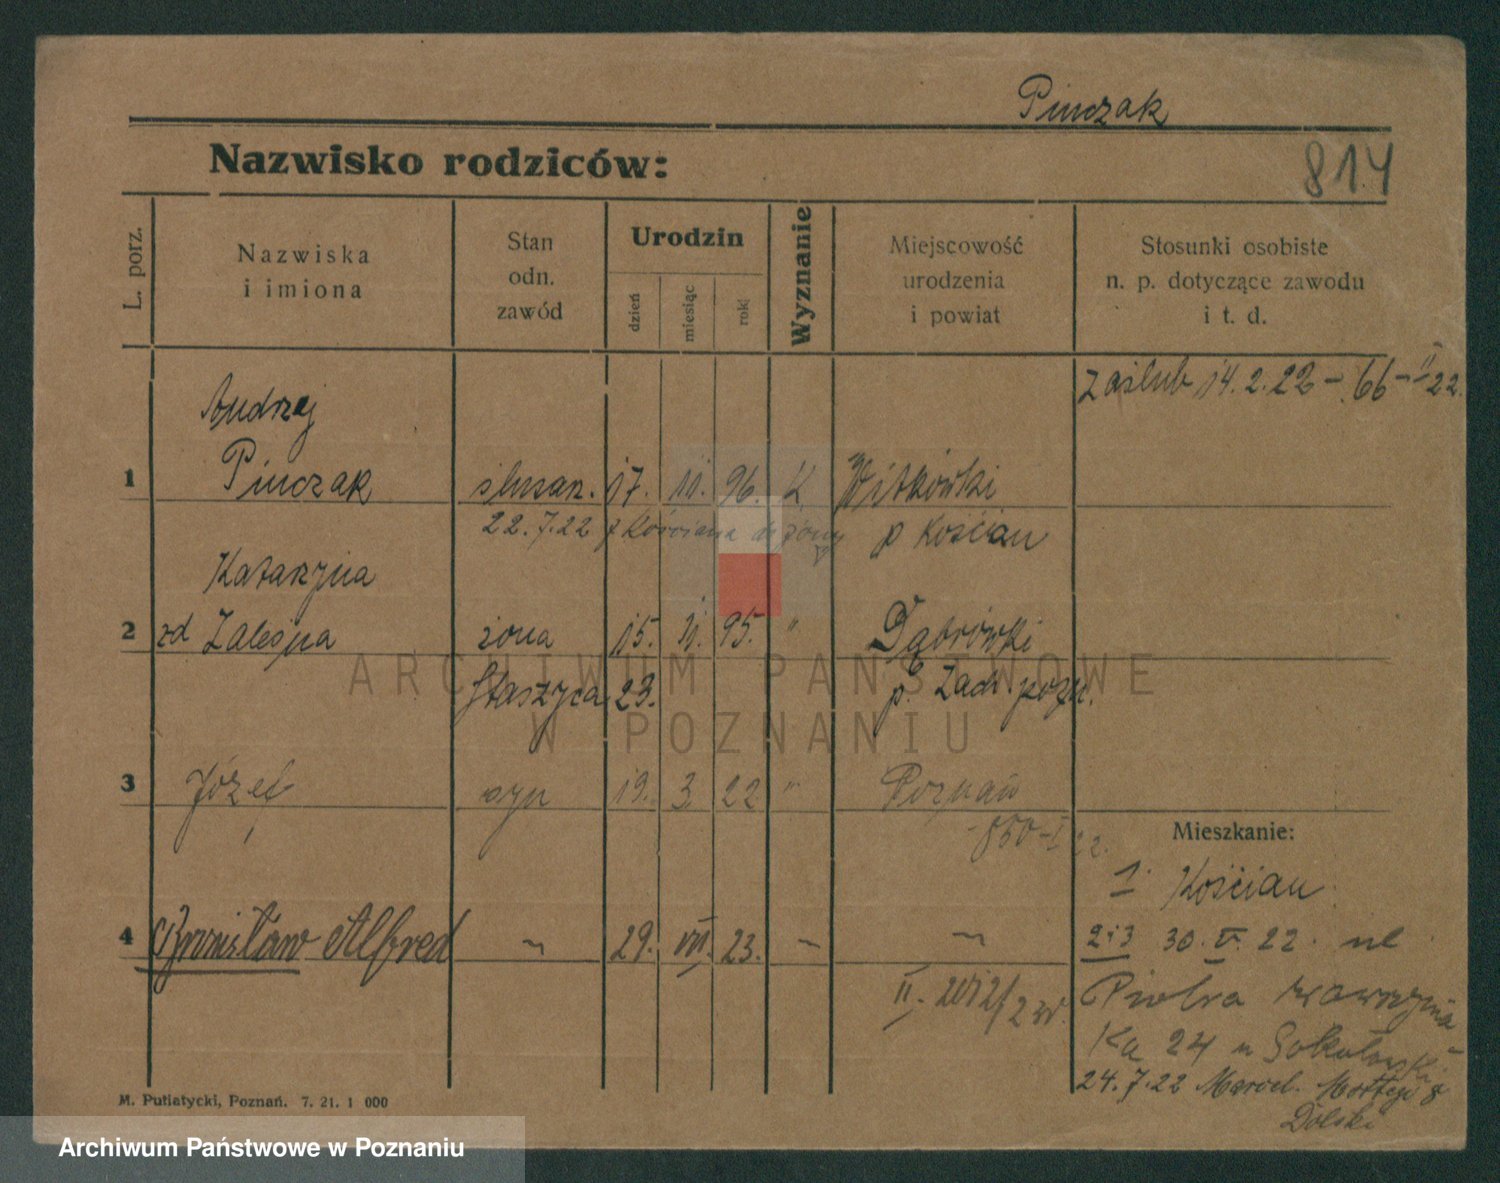 Pinczak
Nazwisko rodziców:
814
L. porz.
Nazwiska
i imiona
Stan
odn.
zawód
Urodzin
dzień
miesiąc
rok
Wyznanie
Miejscowość
urodzenia
i powiat
Stosunki osobiste
n. p. dotyczące zawodu
i t. d.
zaślub 14.2.22 – 66 – II 22.
Andrzej
1 Pinczak ślusarz. 17. 11. 96. K. Witkówki
22.7.22 z Kościana do żony p Kościan
Katarzyna
2 zd Zalesna żona 15. 11. 95. " Dąbrówki
Staszyca 23. p. Zach. pozn.
3 Józef syn 19. 3. 22 " Poznań
850 – I 22.
Mieszkanie:
1. Kościan
4 Bronisław Alfred 29. VII. 23.
2 i 3 30. V. 22. ul
II.
Piotra Wawrzyniaka 24 u Sokołowski
24.7.22 Marcel. Mottego 8
Dolski
M. Putiatycki, Poznań. 7. 21. 1 000
ARCHIWUM PAŃSTWOWE
W POZNANIU
Archiwum Państwowe w Poznaniu